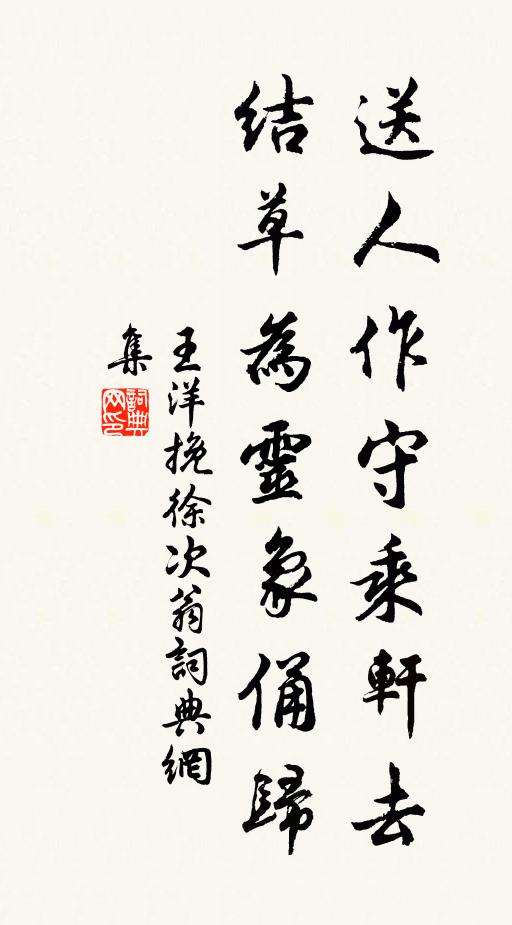 送人作守乘軒去
結草為靈象俑歸
王洋挽徐次翁詞典網
集
詞典网印